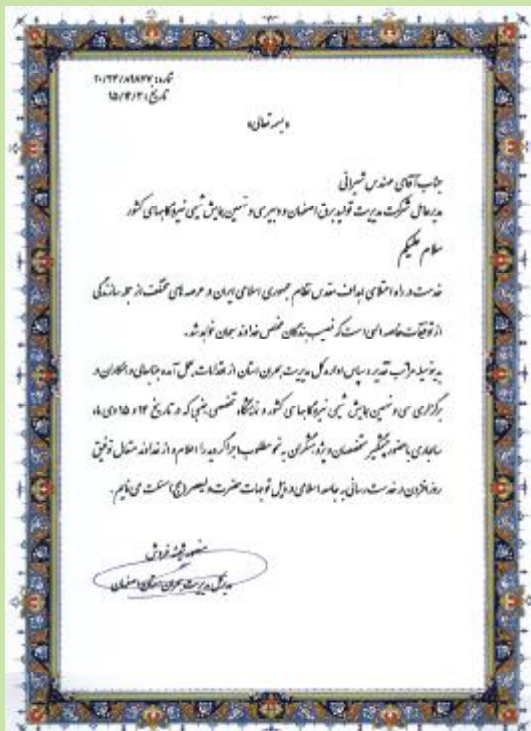 شماره: ۲۰/۲۳/۸۹۸۲۷
تاریخ: ۹۵/۱۲/۳
«بسمه تعالی»
جناب آقای مهندس شیرانی
مدیرعامل شرکت مدیریت تولید برق اصفهان و دبیر سی و نهمین همایش شیمی نیروگاههای کشور
سلام علیکم
خدمت در راه اعتلای اهداف مقدس نظام جمهوری اسلامی ایران در عرصه های مختلف از جمله سازندگی
از توفیقات خاصه الهی است که نصیب بندگان مخلص خداوند سبحان خواهد شد.
بدینوسیله مراتب تقدیر و سپاس اداره کل مدیریت بحران استان از اقدامات بعمل آمده جنابعالی و همکاران در
برگزاری سی و نهمین همایش شیمی نیروگاههای کشور و نمایشگاه تخصصی جنبی که در تاریخ ۱۴ و ۱۵ دی ماه
سالجاری با حضور چشمگیر متخصصان و پژوهشگران به نحو مطلوب اجرا گردید را اعلام و از خداوند متعال توفیق
روزافزون در خدمت رسانی به جامعه اسلامی در ذیل توجهات حضرت ولیعصر (عج) مسئلت می نمایم.
منصور شیشه فروش
مدیرکل مدیریت بحران استان اصفهان